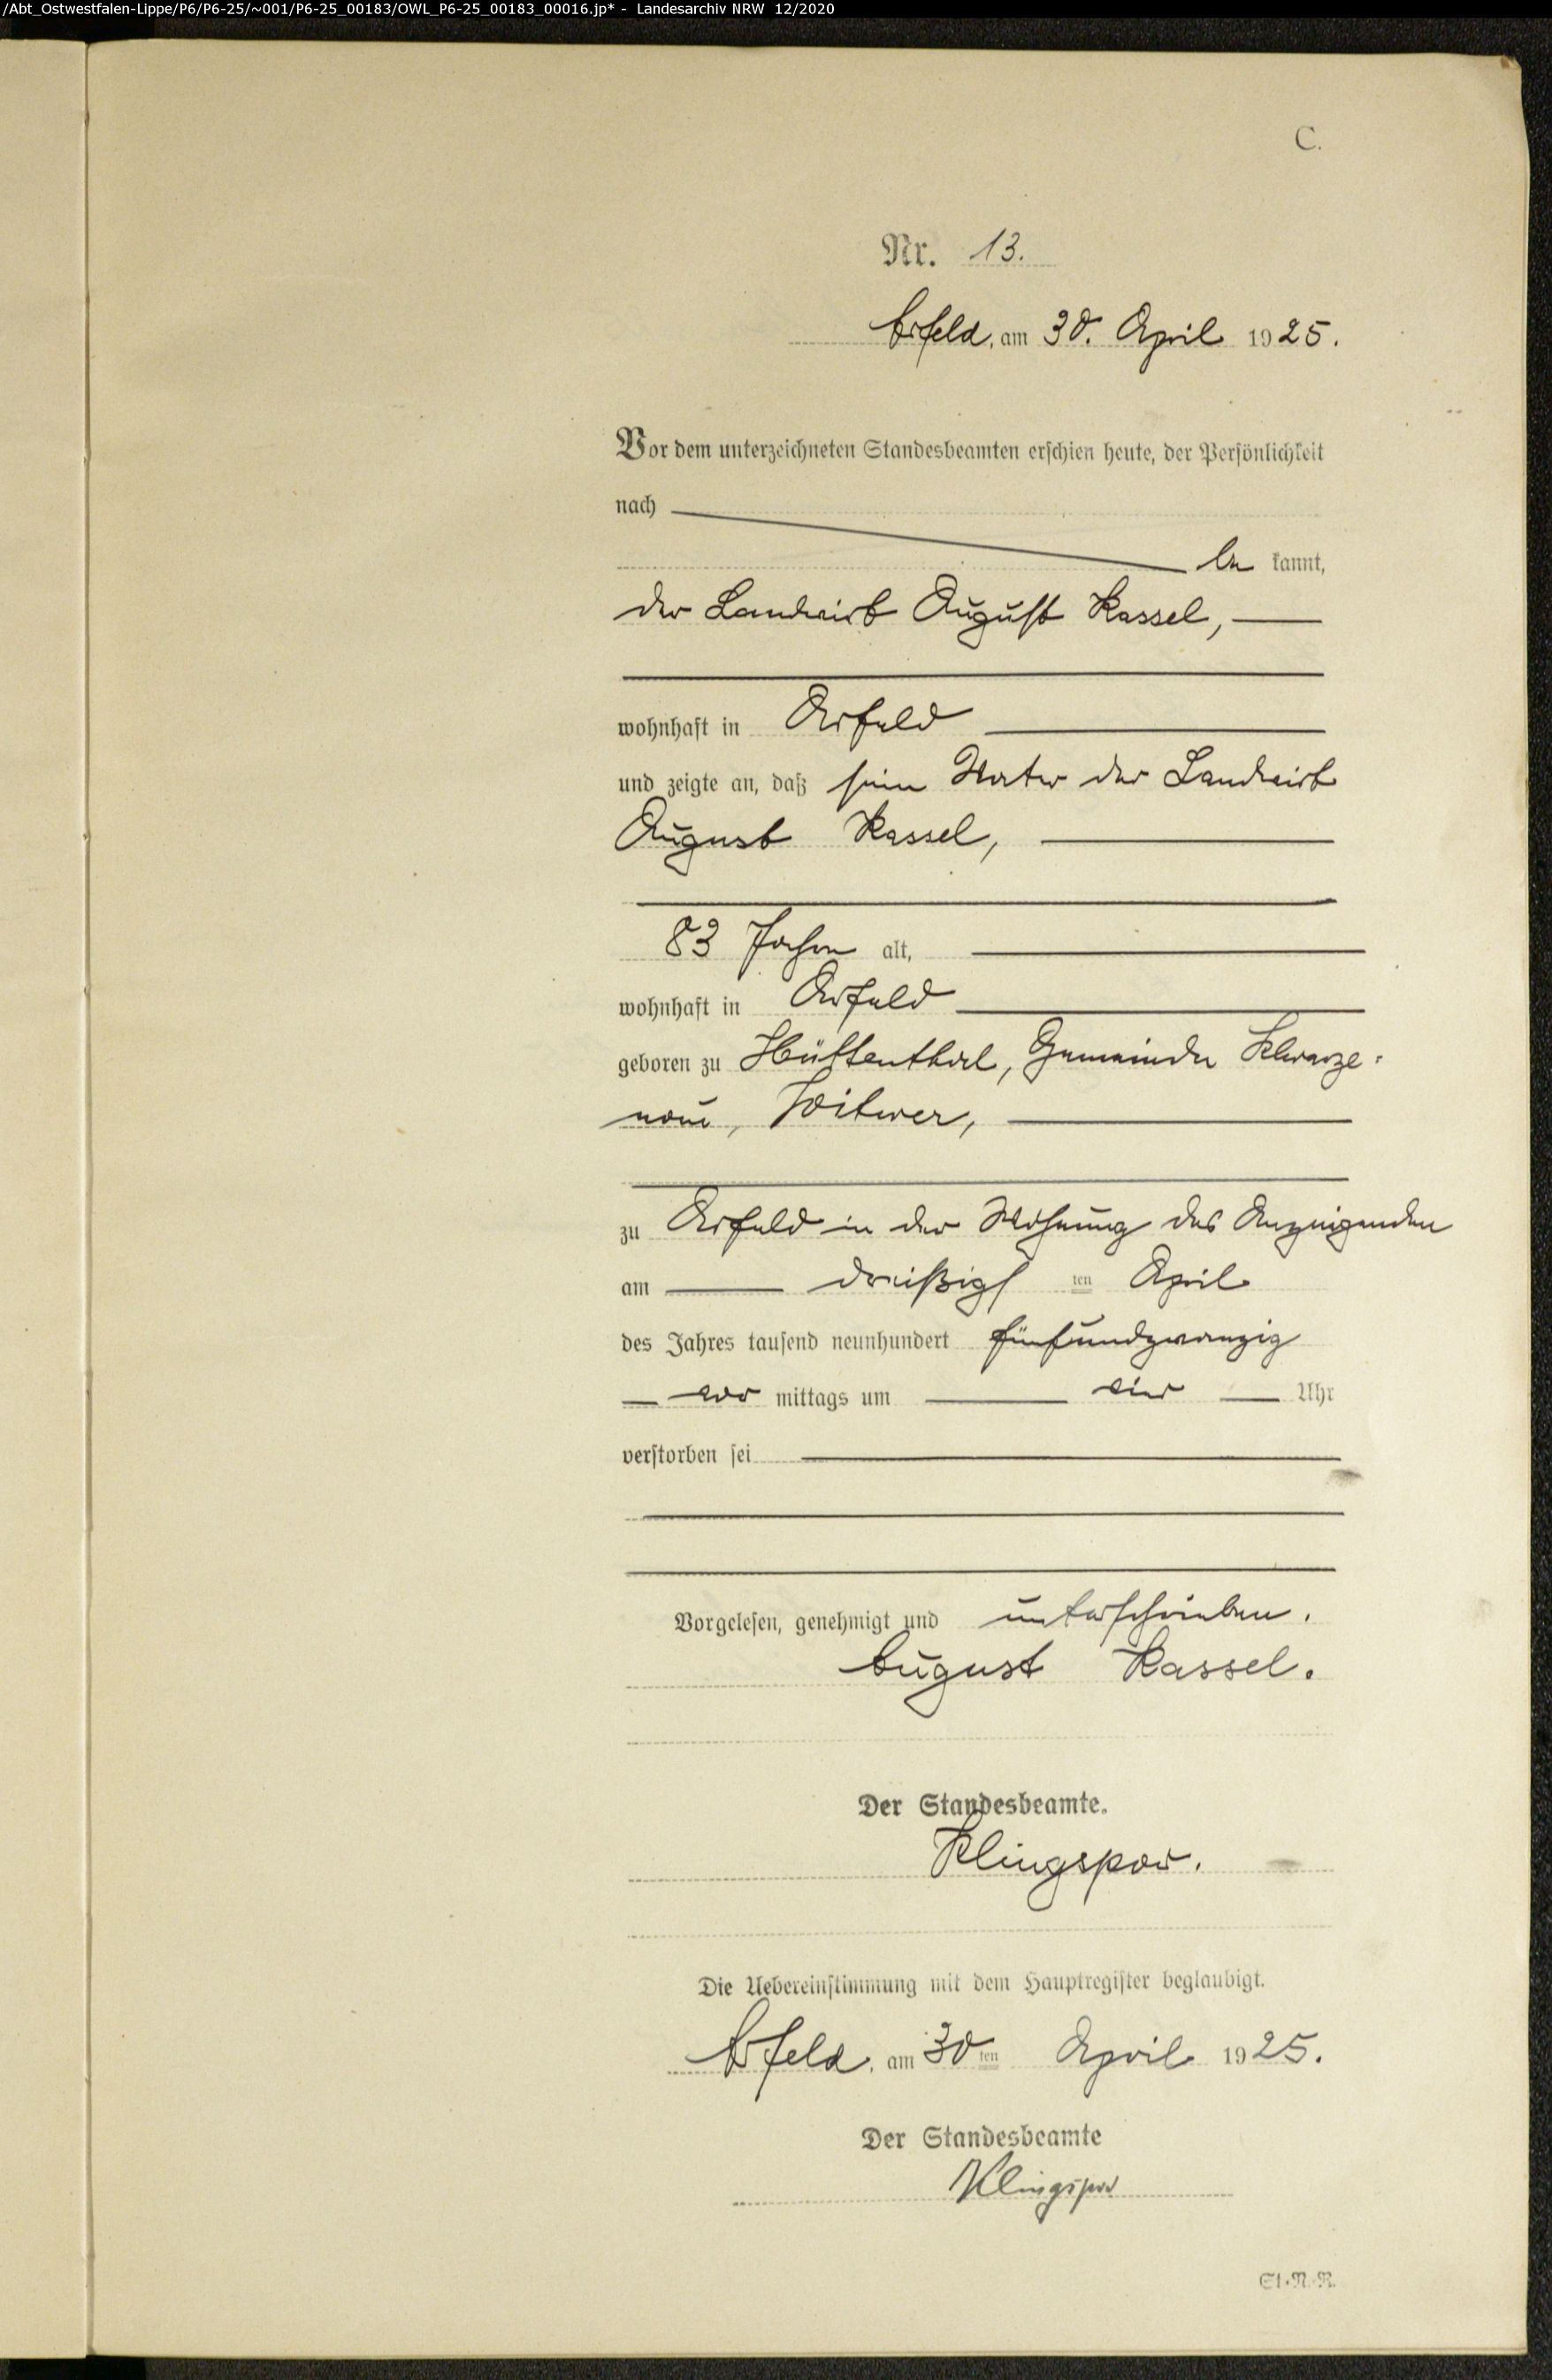 /Abt_Ostwestfalen-Lippe/P6/P6-25/~001/P6-25_00183/OWL_P6-25_00183_00016.jp* - Landesarchiv NRW 12/2020
C.
Nr. 13.
Arfeld, am 30. April 1925.
Vor dem unterzeichneten Standesbeamten erschien heute, der Persönlichkeit
nach
be kannt,
der Landwirt August Kassel,
wohnhaft in Arfeld
und zeigte an, daß sein Vater der Landwirt
August Kassel,
83 Jahre alt,
wohnhaft in Arfeld
geboren zu Hüttenthal, Gemeinde Schwarze-
nau, Witwer,
zu Arfeld in der Wohnung des Anzeigenden
am dreißigs ten April
des Jahres tausend neunhundert fünfundzwanzig
vor mittags um vier Uhr
verstorben sei
Vorgelesen, genehmigt und unterschrieben.
August Kassel.
Der Standesbeamte.
Klingspor.
Die Uebereinstimmung mit dem Hauptregister beglaubigt.
Arfeld, am 30 ten April 1925.
Der Standesbeamte
Klingspor
St.-N.-R.